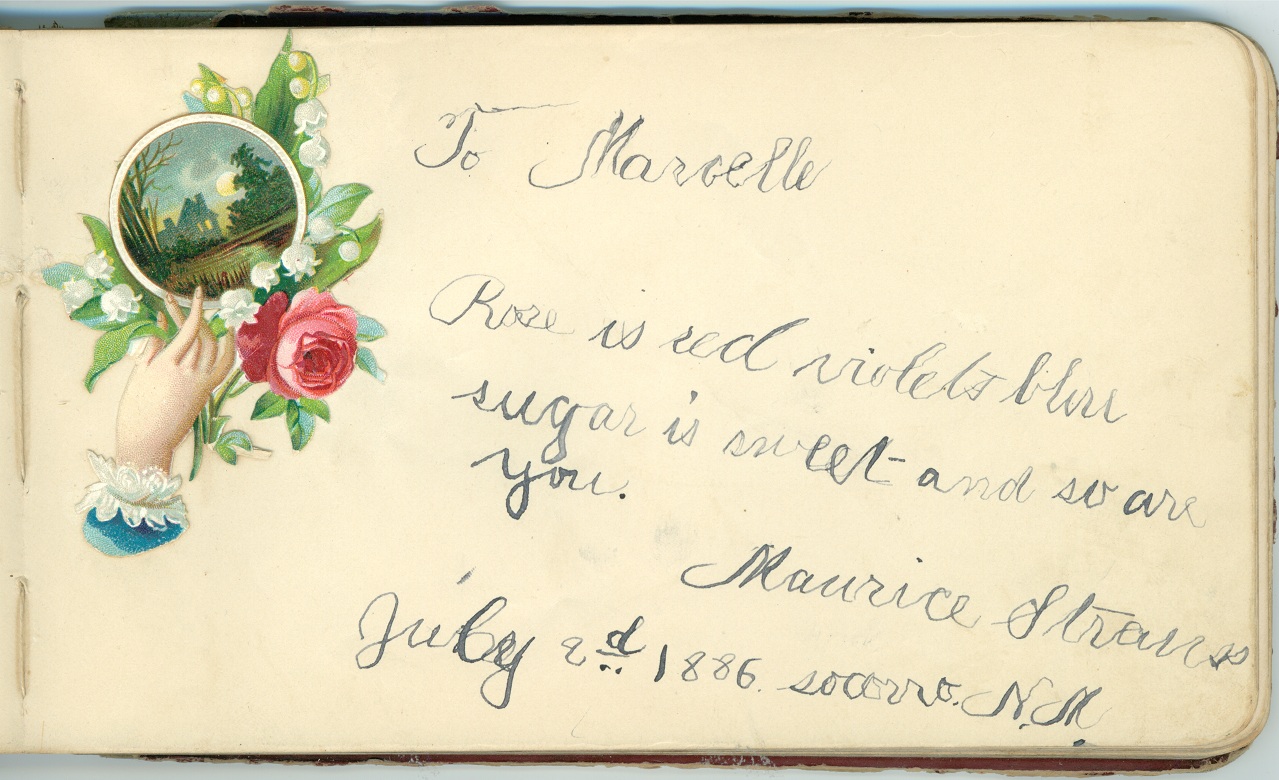 To Marcelle
Rose is red violets blue
sugar is sweet and so are
you.
Maurice Strauss
July 2d 1886. socorro. N.M.